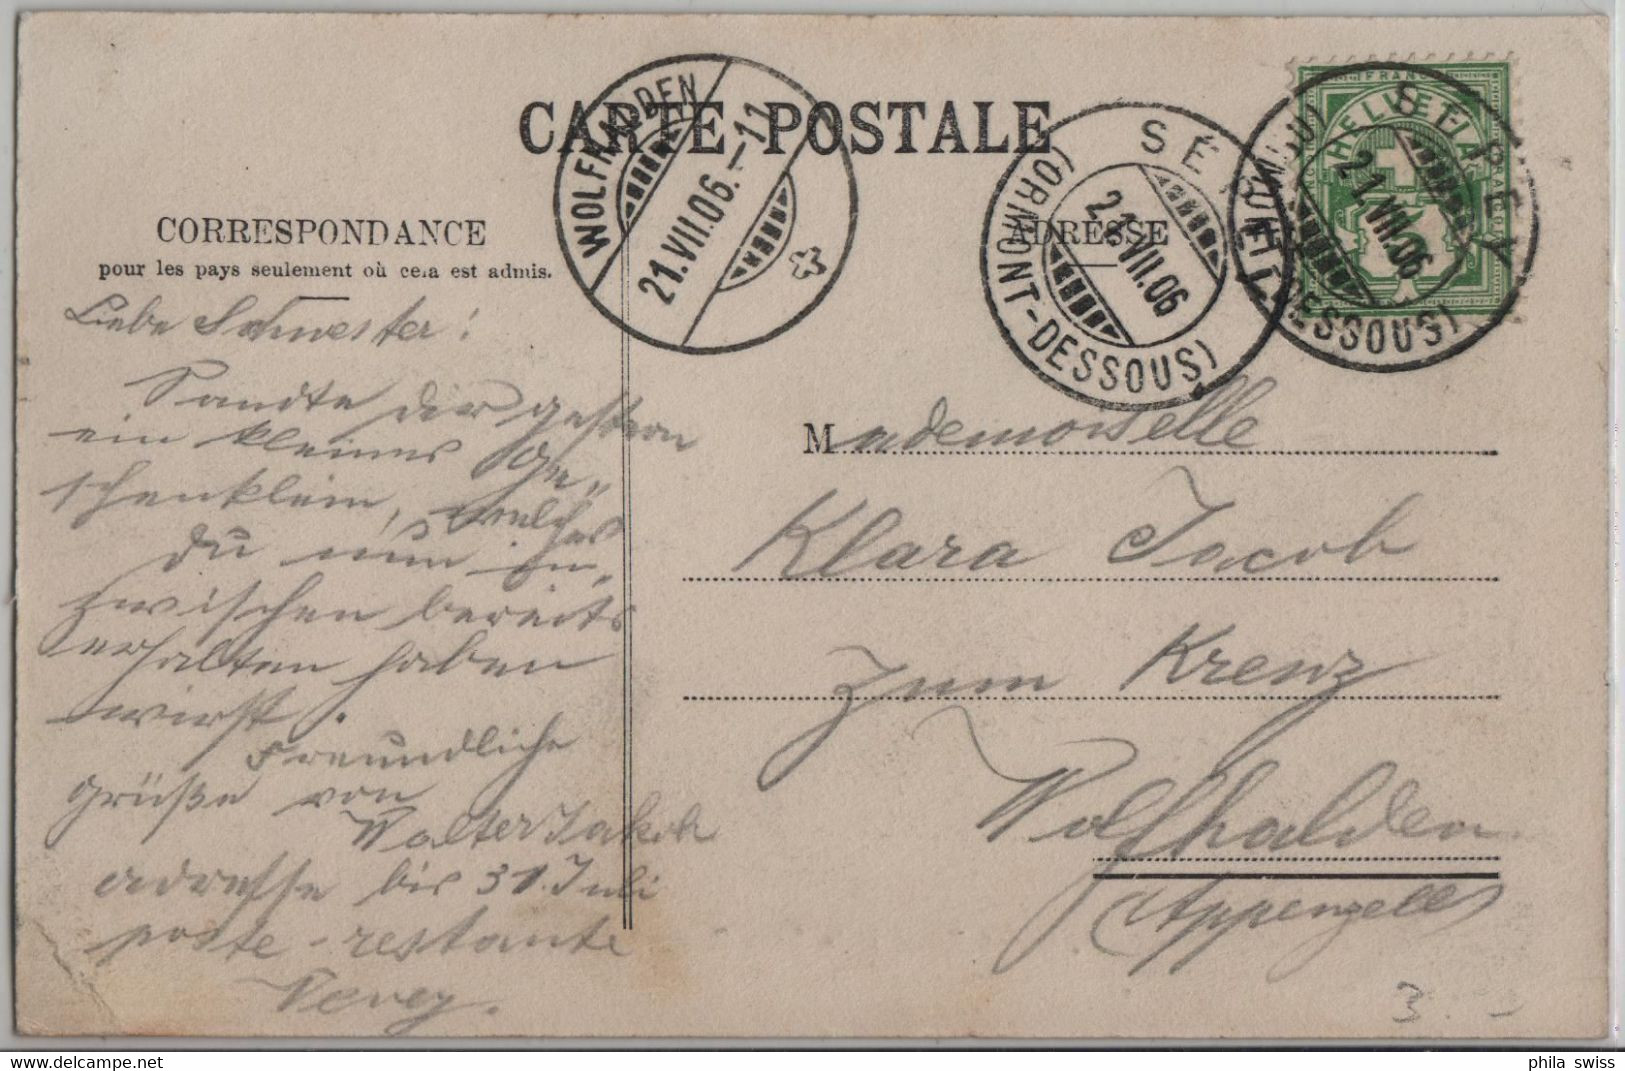 CARTE POSTALE
CORRESPONDANCE
pour les pays seulement où cela est admis.
ADRESSE
WOLFHALDEN
21.VII.06.–11
SÉPEY
(ORMONT-DESSOUS)
21.VII.06
SÉPEY
(ORMONT-DESSOUS)
21.VII.06
FRANCO
HELVETIA
Liebe Schwester!
Sandte dir gestern
ein kleines Ge„
schenklein, welches
du nun in„
zwischen bereits
erhalten haben
wirst.
Freundliche
Grüße von
Walter Jakob
adresse bis 31. Juli
poste-restante
Vevey.
Mademoiselle
Klara Jacob
zum Kreuz
Wolfhalden
(Appenzell)
3.
phila_swiss